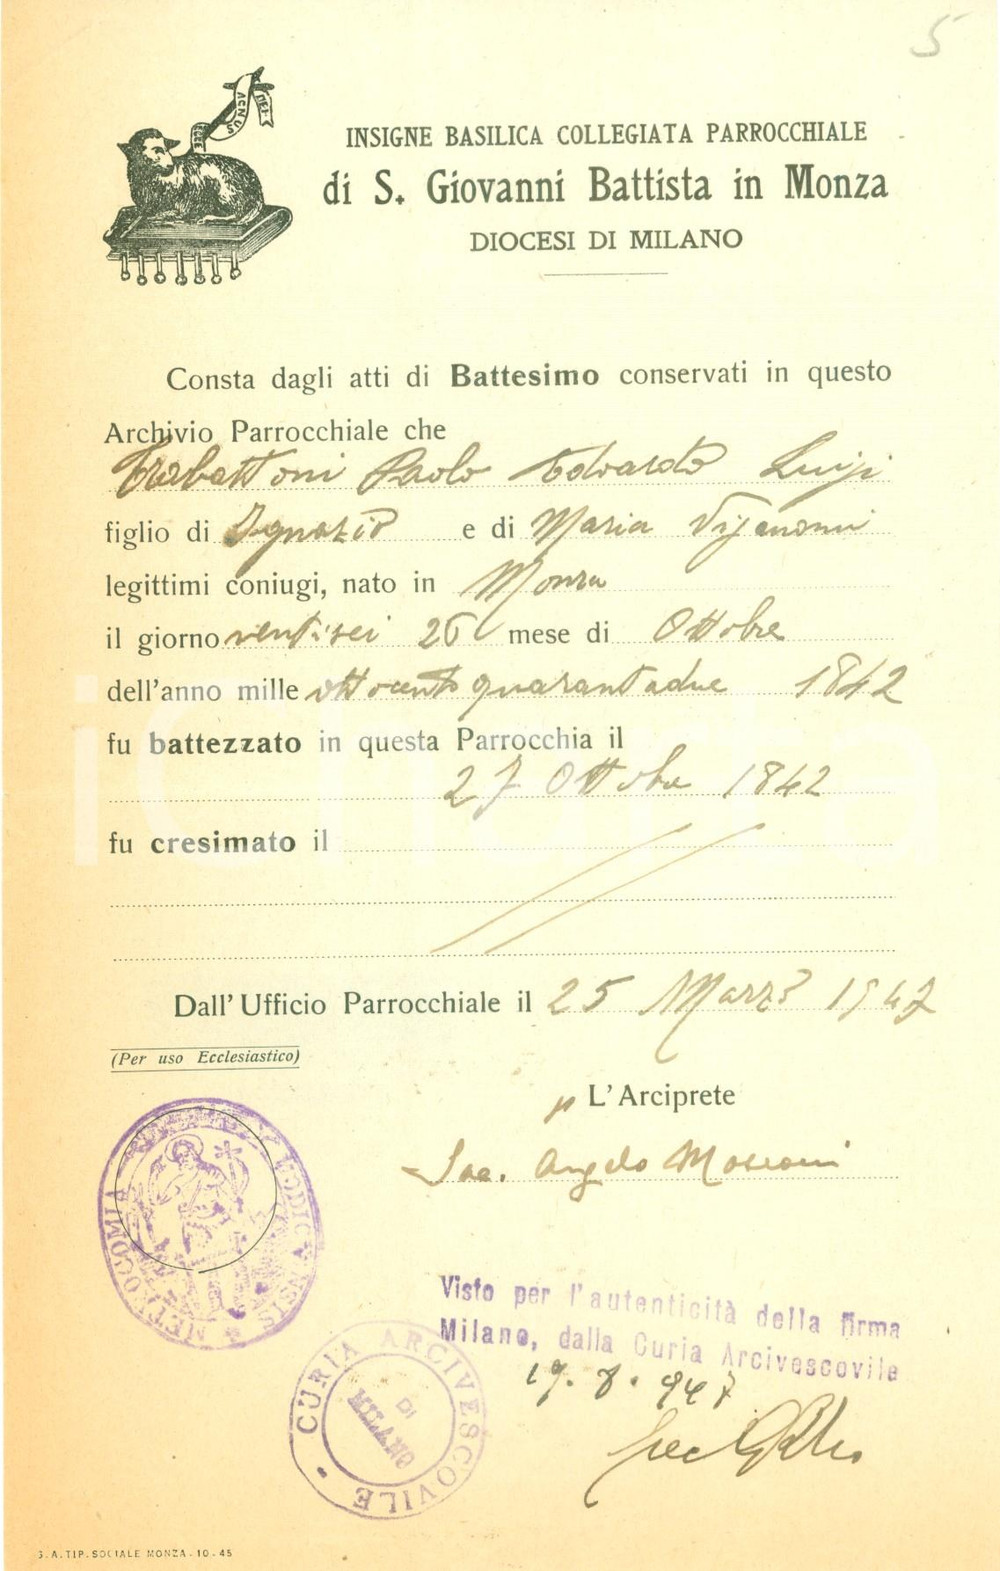 5
ECCE
AGNUS
DEI
INSIGNE BASILICA COLLEGIATA PARROCCHIALE
di S. Giovanni Battista in Monza
DIOCESI DI MILANO
Consta dagli atti di Battesimo conservati in questo
Archivio Parrocchiale che
Trabattoni Paolo Edoardo Luigi
figlio di Ignazio e di Maria Viganoni
legittimi coniugi, nato in Monza
il giorno ventisei 26 mese di Ottobre
dell'anno mille ottocento quarantadue 1842
fu battezzato in questa Parrocchia il
27 Ottobre 1842
fu cresimato il
Dall'Ufficio Parrocchiale il 25 Marzo 1947
(Per uso Ecclesiastico)
p L'Arciprete
Sac. Angelo Mosconi
METROCOMIA
Visto per l'autenticità della firma
Milano, dalla Curia Arcivescovile
19. 8. 947
CURIA ARCIVESCOVILE
DI
MILANO
S. A. TIP. SOCIALE MONZA - 10 - 45